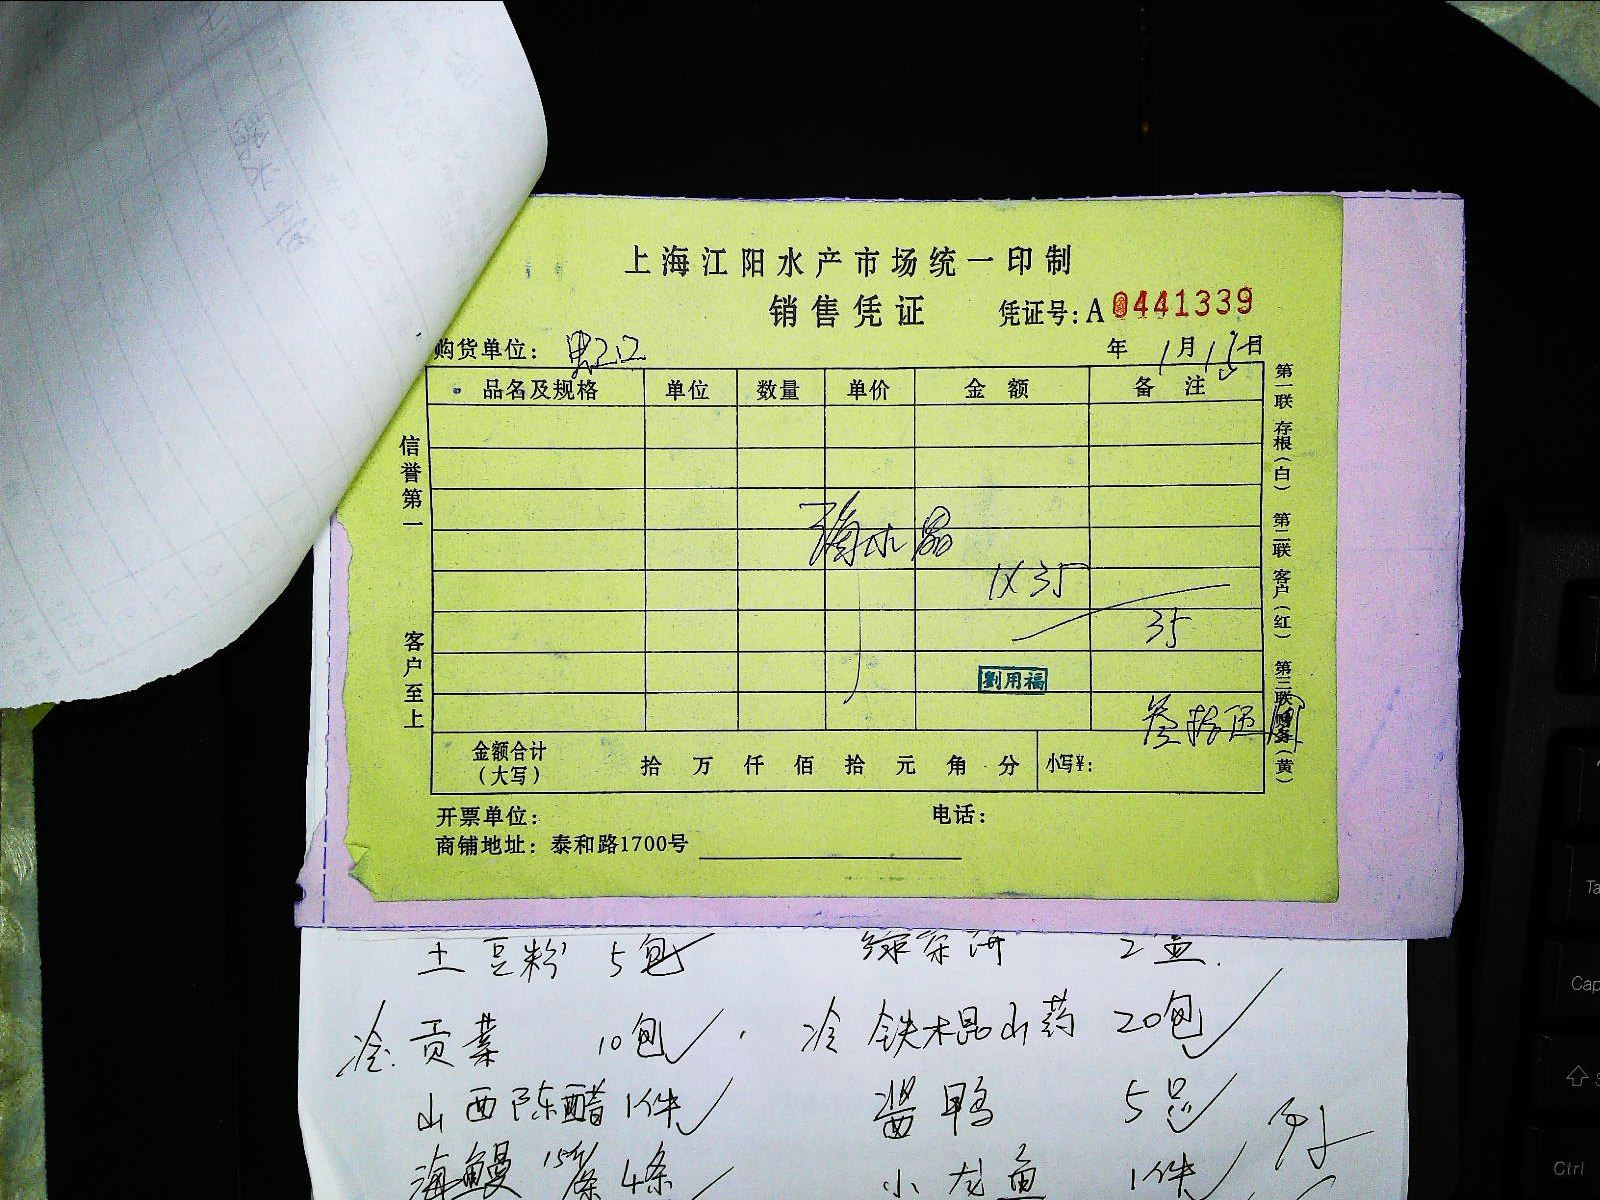 上海江阳水产市场统一印制
销售凭证 凭证号：A 0441339
购货单位： 年 1月15日
品名及规格 单位 数量 单价 金额 备注
信誉第一
客户至上
水晶
1X35
35
劉用福
叁拾伍
金额合计（大写） 拾 万 仟 佰 拾 元 角 分 小写¥：
开票单位： 电话：
商铺地址：泰和路1700号
第一联 存根（白） 第二联 客户（红） 第三联 财务（黄）
土豆粉 5包 绿茶饼 2盒.
冷.贡菜 10包 冷 铁木昆山药 20包
山西陈醋 1件 酱鸭 5只
海鳗 4条 小龙鱼 1件
Ta
Cap
Ctrl